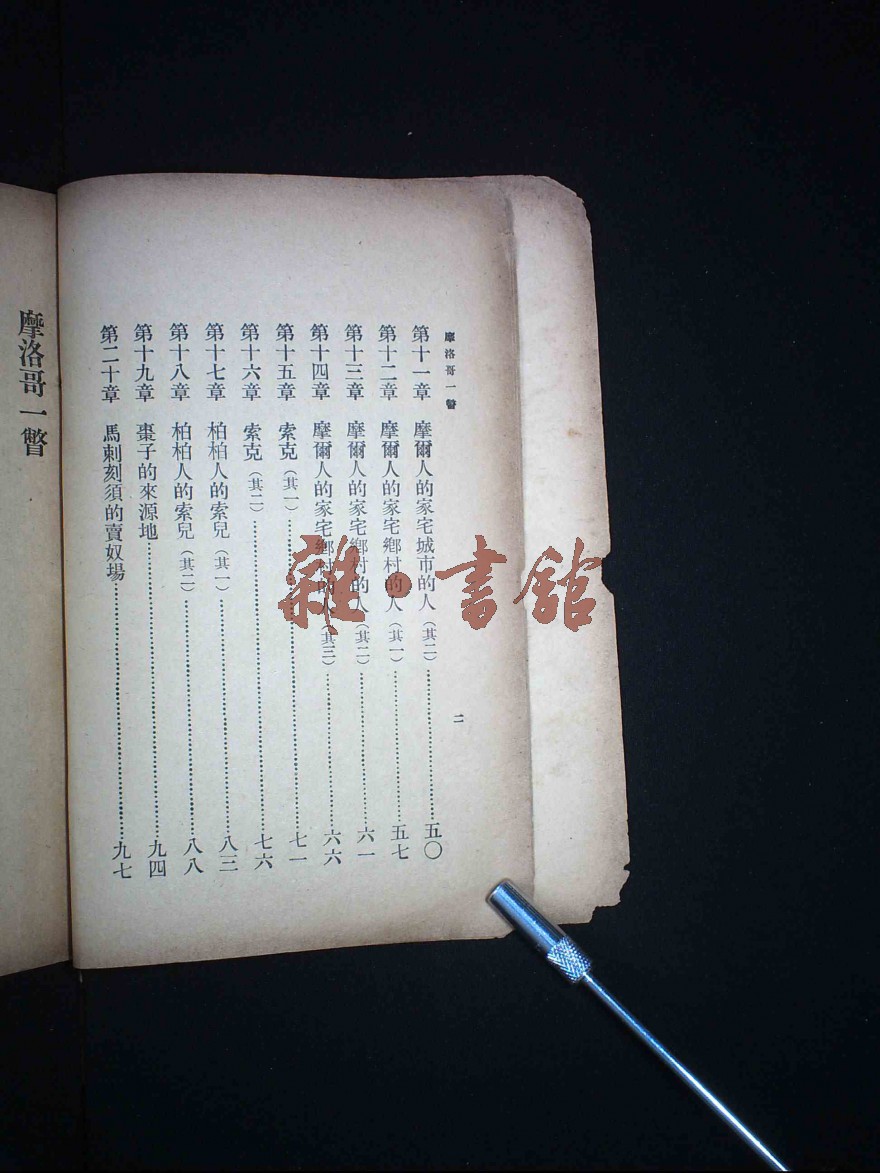 摩洛哥一瞥
二
第十一章 摩爾人的家宅城市的人(其二)……五〇
第十二章 摩爾人的家宅鄉村的人(其一)……五七
第十三章 摩爾人的家宅鄉村的人(其二)……六一
第十四章 摩爾人的家宅鄉村的人(其三)……六六
第十五章 索克(其一)……七一
第十六章 索克(其二)……七六
第十七章 柏柏人的索兒(其一)……八三
第十八章 柏柏人的索兒(其二)……八八
第十九章 棗子的來源地……九四
第二十章 馬剌刻須的賣奴場……九七
摩洛哥一瞥
雜·書館